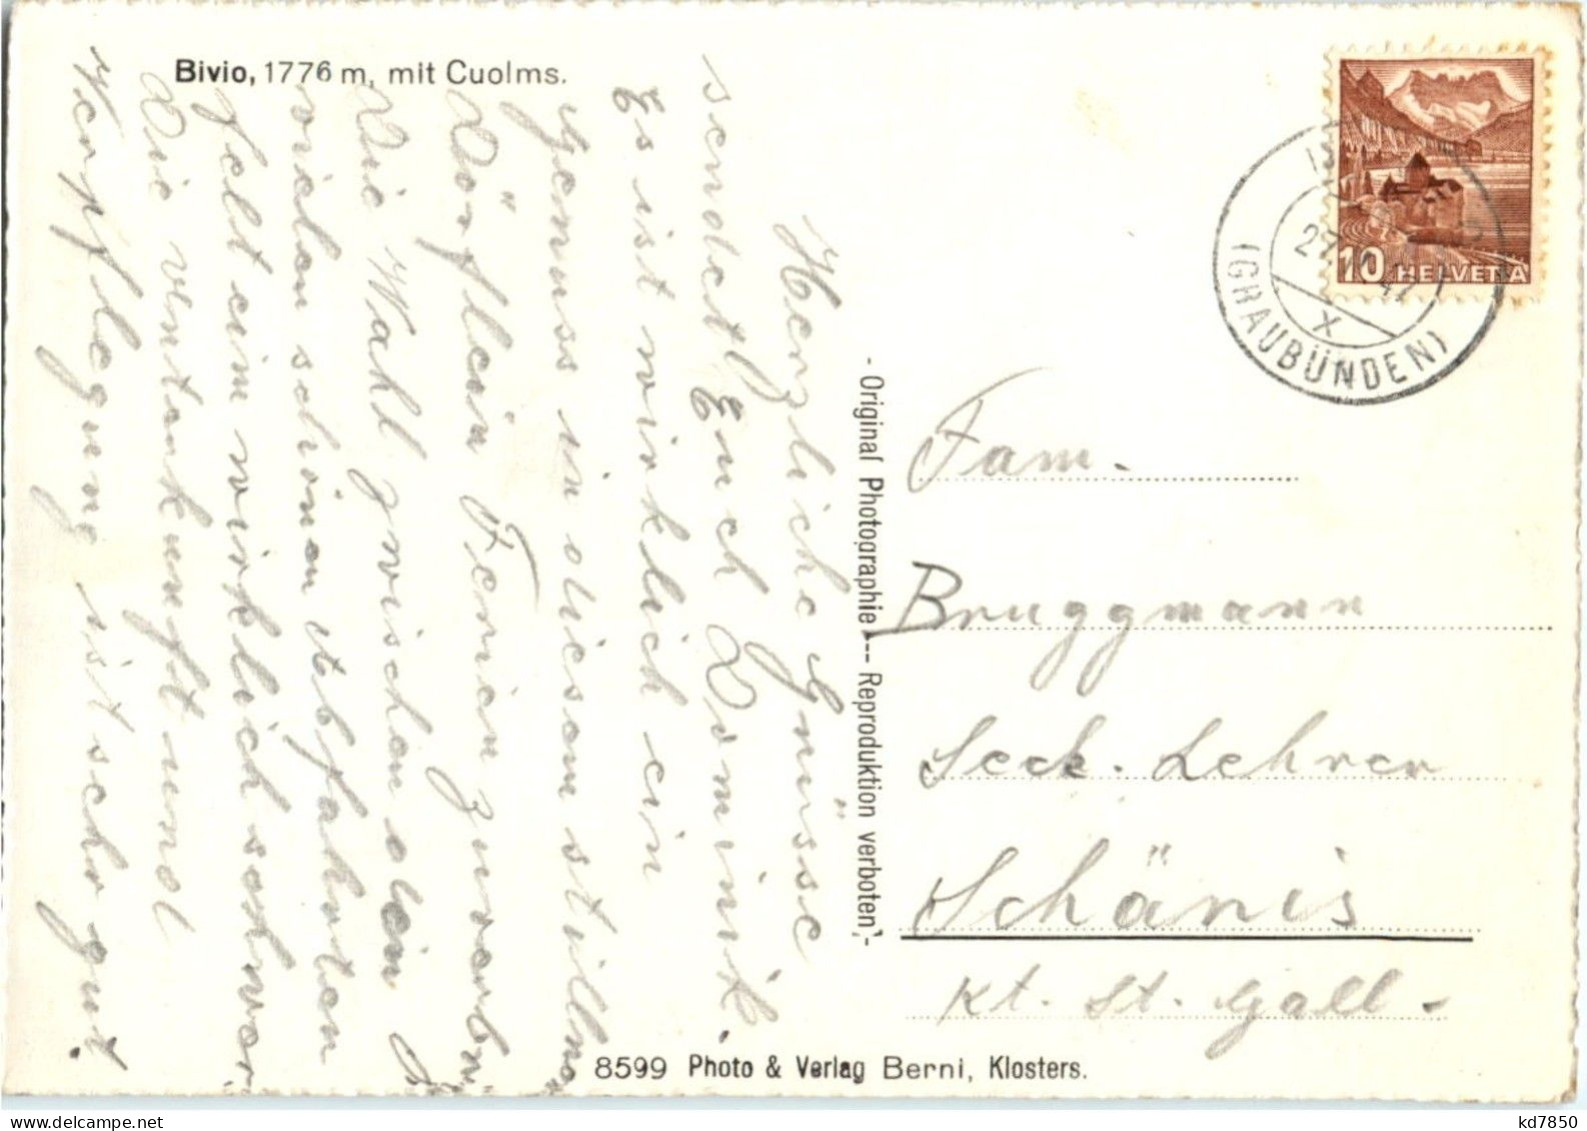 Bivio, 1776 m, mit Cuolms.
Herzliche Grüsse
sendet Euch Dominik.
Es ist wirklich ein
Genuss in diesem stillen
Dörflein Ferien zu verbr.
Die Wahl zwischen den
vielen schönen Abfahrten
fällt eim wirklich schwer
Die Unterkunft und
Verpflegung ist sehr gut.
- Original Photographie -- Reproduktion verboten,-
8599 Photo & Verlag Berni, Klosters.
10 HELVETIA
(GRAUBÜNDEN)
X
Fam.
Bruggmann
Sek. Lehrer
Schänis
Kt. St. Gall.
www.delcampe.net
kd7850